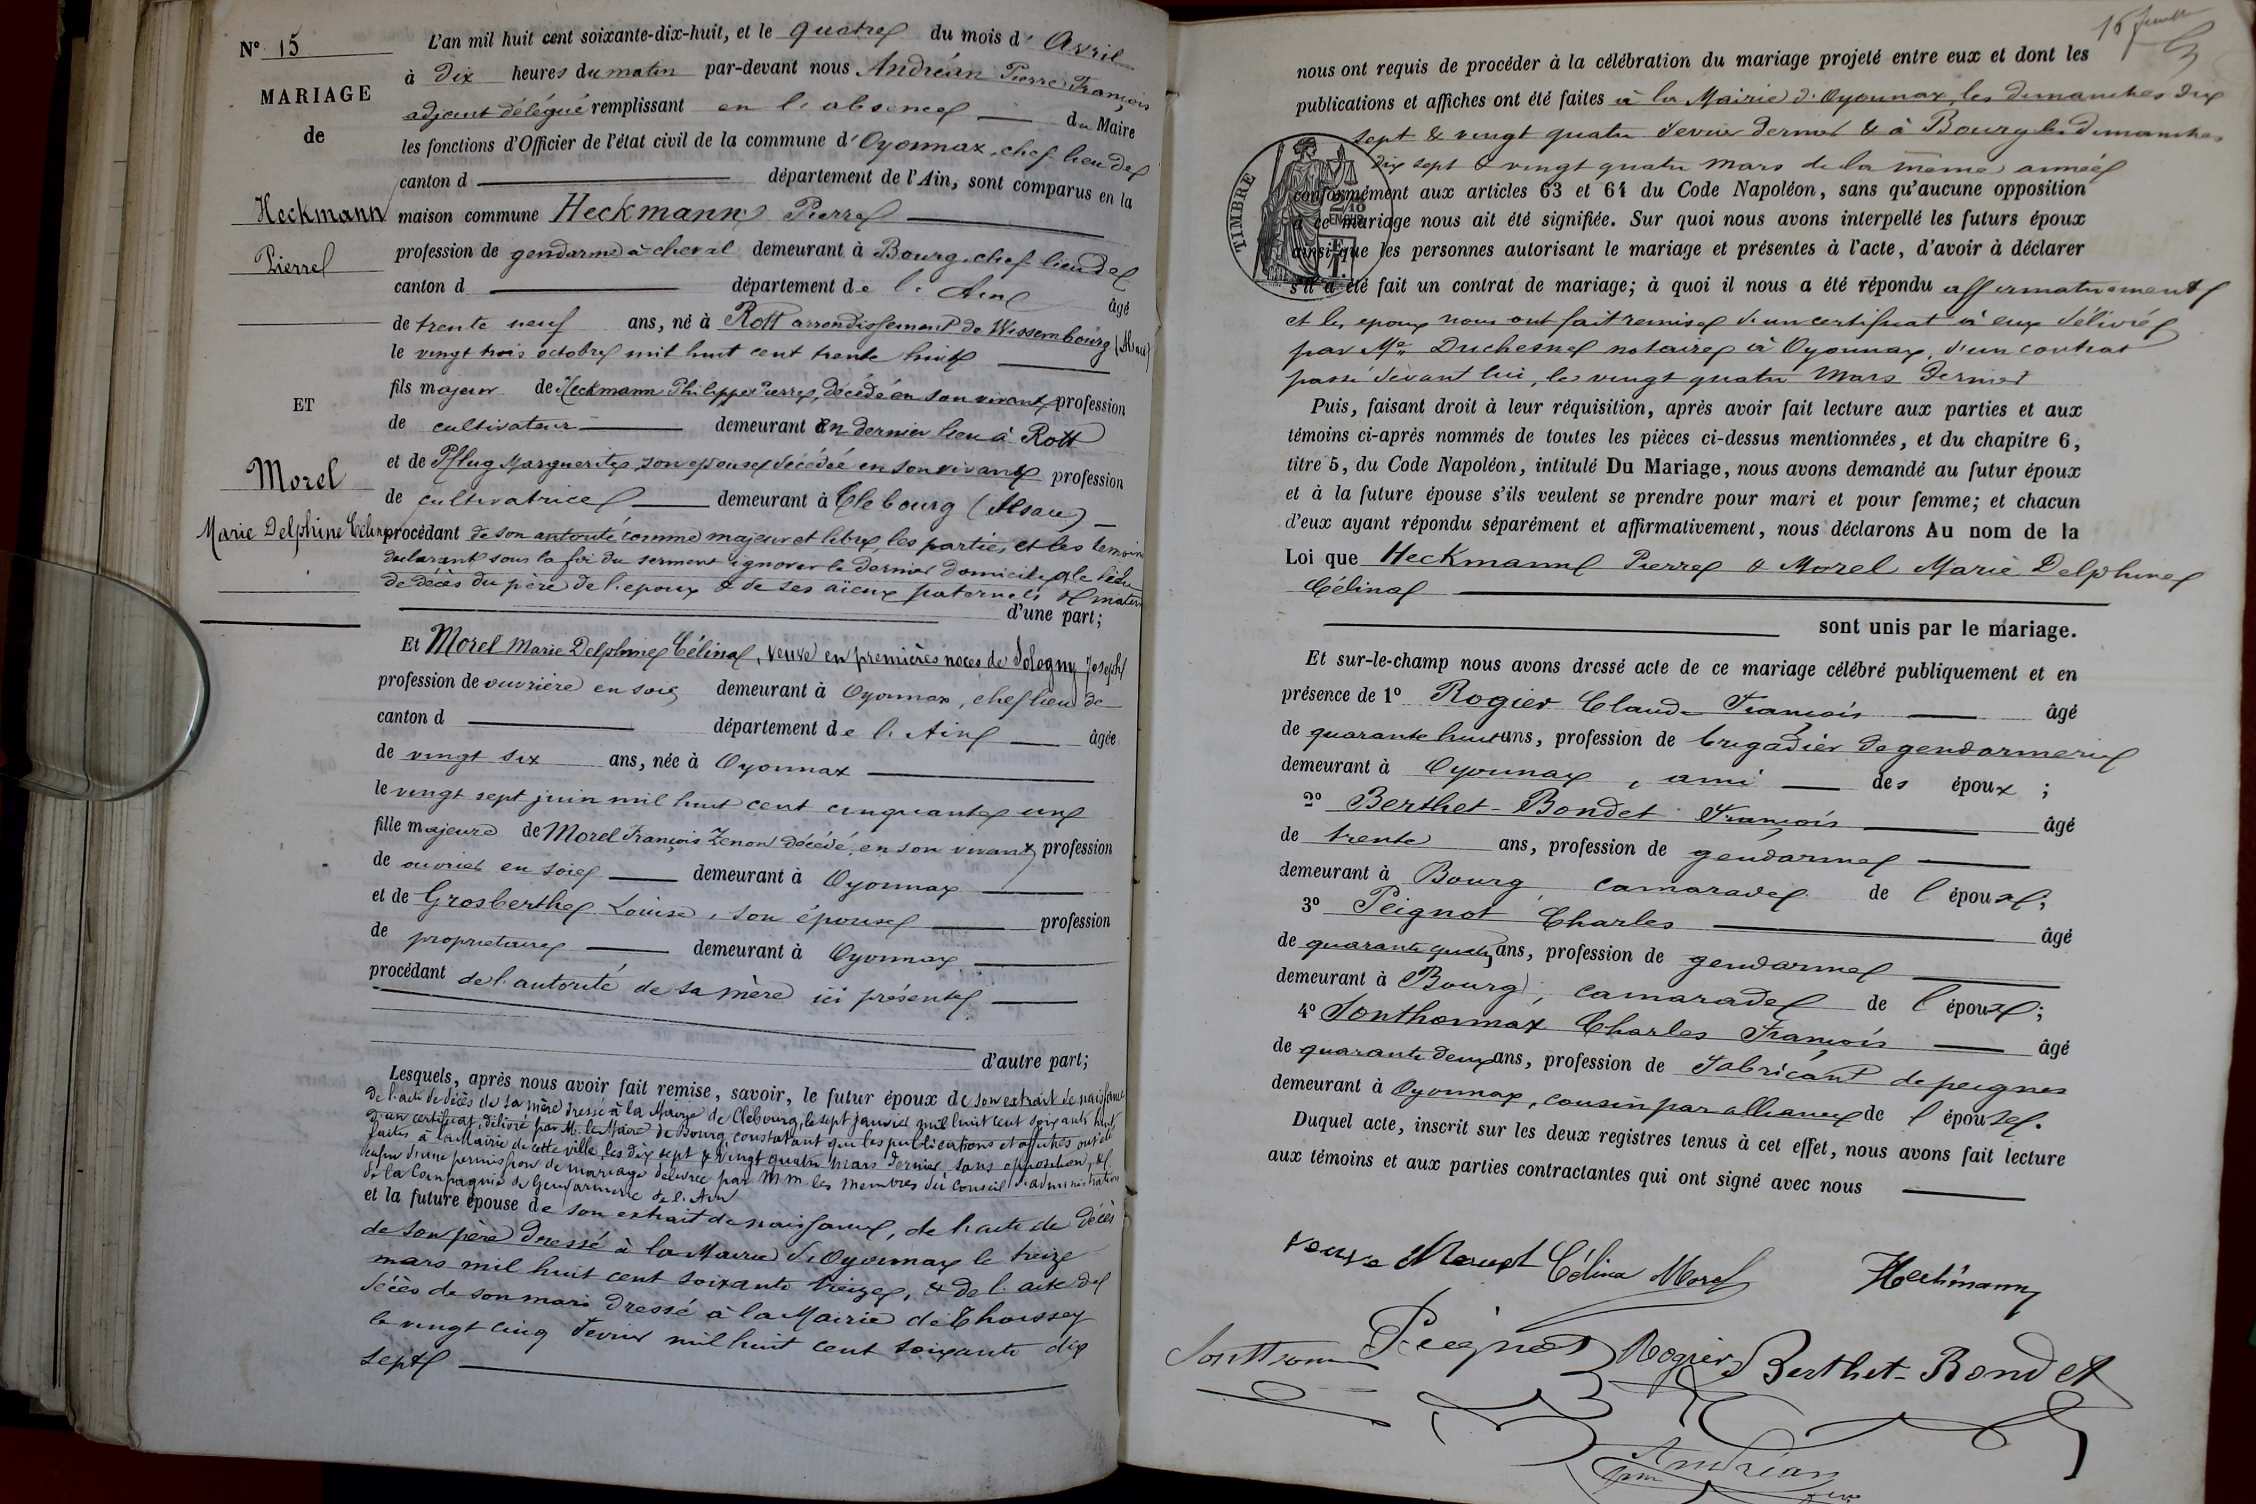 N° 15
MARIAGE
de
Heckmann
Pierre
ET
Morel
Marie Delphine Célina
L'an mil huit cent soixante-dix-huit, et le quatre du mois d'Avril
à dix heures du matin par-devant nous Andréan Pierre François
adjoint délégué remplissant en l'absence du Maire
les fonctions d'Officier de l'état civil de la commune d'Oyonnax, chef lieu de
canton d département de l'Ain, sont comparus en la
maison commune Heckmann Pierre
profession de gendarme à cheval demeurant à Bourg, chef lieu de
canton d département de l'Ain âgé
de trente neuf ans, né à Rott arrondissement de Wissembourg (Alsace)
le vingt trois octobre mil huit cent trente huit
fils majeur de Heckmann Philippe Pierre, décédé en son vivant profession
de cultivateur demeurant en dernier lieu à Rott
et de Pflug Marguerite, son épouse décédée en son vivant profession
de cultivatrice demeurant à Clebourg (Alsace)
procédant de son autorité comme majeur et libre, les parties et les témoins
déclarant sous la foi du serment ignorer le dernier domicile et le lieu
de décès du père de l'époux & de ses aïeux paternels & matern
d'une part;
Et Morel Marie Delphine Célina, veuve en premières noces de Sologny Joseph
profession de ouvrière en soie demeurant à Oyonnax, chef lieu de
canton d département de l'Ain âgée
de vingt six ans, née à Oyonnax
le vingt sept juin mil huit cent cinquante un
fille majeure de Morel François Zenon décédé, en son vivant profession
de ouvrier en soie demeurant à Oyonnax
et de Grosberthe Louise, son épouse profession
de propriétaire demeurant à Oyonnax
procédant de l'autorité de sa mère ici présente
d'autre part;
Lesquels, après nous avoir fait remise, savoir, le futur époux de son extrait de naissance
de l'acte de décès de sa mère dressé à la Mairie de Clebourg, le sept janvier mil huit cent soixante huit,
d'un certificat, délivré par M. le Maire de Bourg, constatant que les publications et affiches ont été
faites à la Mairie de cette ville, les dix sept & vingt quatre mars dernier, sans opposition, &
enfin d'une permission de mariage délivrée par MM. les Membres du Conseil d'administration
de la Compagnie de Gendarmerie de l'Ain
et la future épouse de son extrait de naissance, de l'acte de décès
de son père dressé à la Mairie d'Oyonnax le treize
mars mil huit cent soixante treize, & de l'acte de
décès de son mari dressé à la Mairie de Thoissey
le vingt cinq février mil huit cent soixante dix
sept
nous ont requis de procéder à la célébration du mariage projeté entre eux et dont les
publications et affiches ont été faites à la Mairie d'Oyonnax, les dimanches dix
sept & vingt quatre février dernier & à Bourg les dimanches
dix sept & vingt quatre mars de la même année
TIMBRE
conformément aux articles 63 et 64 du Code Napoléon, sans qu'aucune opposition
à ce mariage nous ait été signifiée. Sur quoi nous avons interpellé les futurs époux
ainsi que les personnes autorisant le mariage et présentes à l'acte, d'avoir à déclarer
s'il a été fait un contrat de mariage; à quoi il nous a été répondu affirmativement
et les époux nous ont fait remise d'un certificat à eux délivré
par Me Duchesne notaire à Oyonnax, d'un contrat
passé devant lui, les vingt quatre Mars dernier
Puis, faisant droit à leur réquisition, après avoir fait lecture aux parties et aux
témoins ci-après nommés de toutes les pièces ci-dessus mentionnées, et du chapitre 6,
titre 5, du Code Napoléon, intitulé Du Mariage, nous avons demandé au futur époux
et à la future épouse s'ils veulent se prendre pour mari et pour femme; et chacun
d'eux ayant répondu séparément et affirmativement, nous déclarons Au nom de la
Loi que Heckmann Pierre & Morel Marie Delphine
Célina
sont unis par le mariage.
Et sur-le-champ nous avons dressé acte de ce mariage célébré publiquement et en
présence de 1° Rogier Claude François âgé
de quarante huit ans, profession de brigadier de gendarmerie
demeurant à Oyonnax, ami des époux ;
2° Berthet-Bondet François âgé
de trente ans, profession de gendarme
demeurant à Bourg, camarade de l'époux ;
3° Peignot Charles âgé
de quarante quatre ans, profession de gendarme
demeurant à Bourg, camarade de l'époux ;
4° Sonthonnax Charles François âgé
de quarante deux ans, profession de fabricant de peignes
demeurant à Oyonnax, cousin par alliance de l'épouse.
Duquel acte, inscrit sur les deux registres tenus à cet effet, nous avons fait lecture
aux témoins et aux parties contractantes qui ont signé avec nous
veuve Morel Célina Morel Heckmann
Peignot Rogier Berthet-Bondet
Andréan